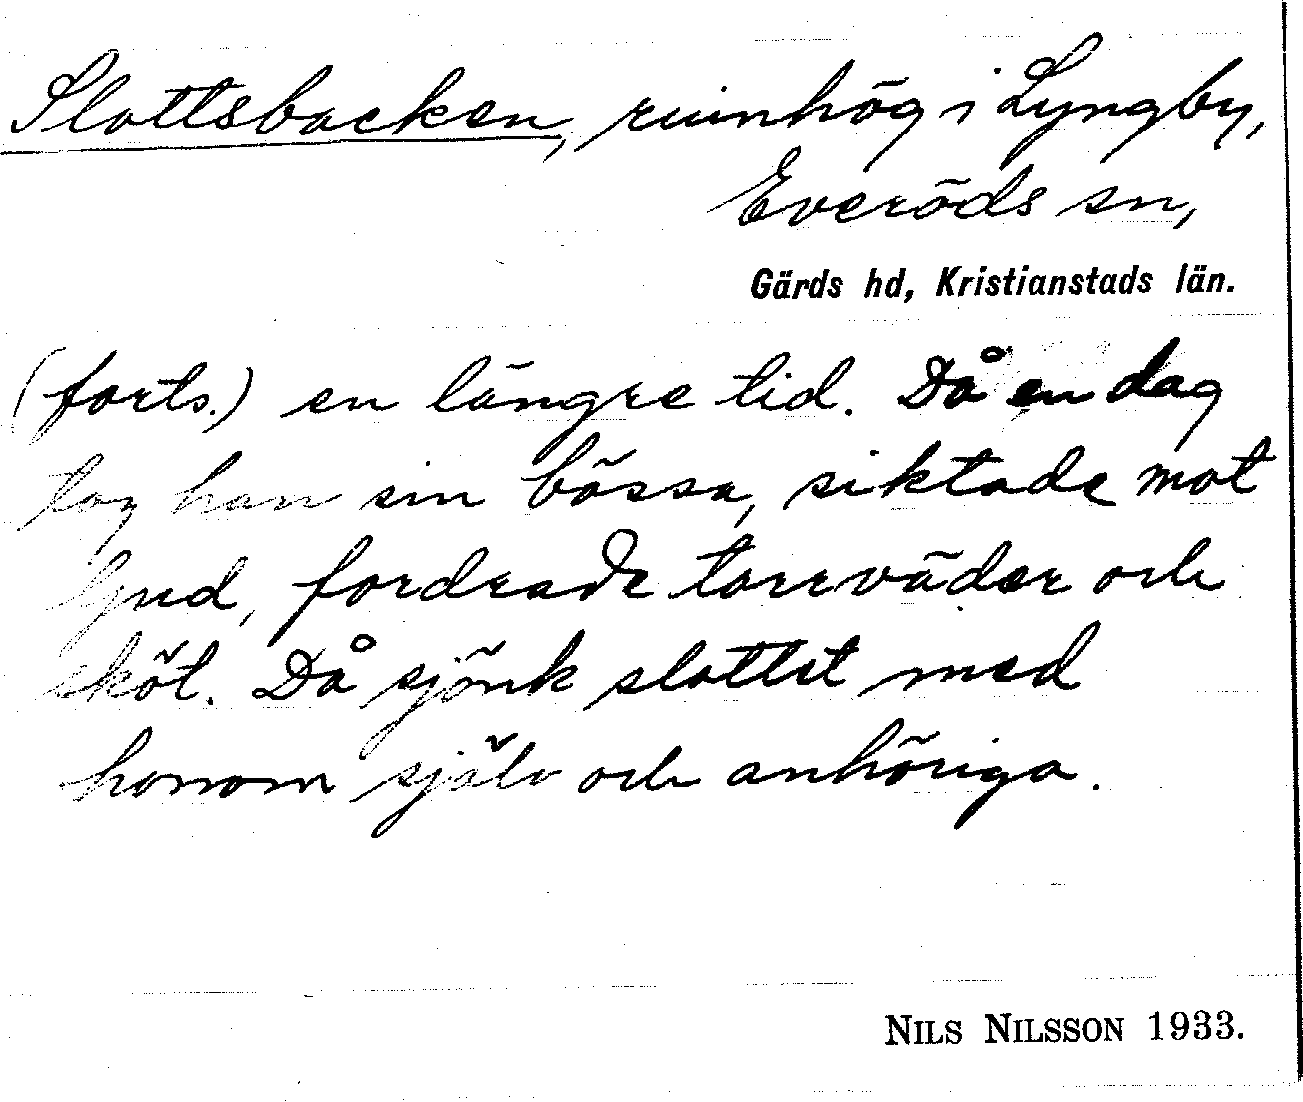 Slottsbacken, ruinhög i Lyngby,
Everöds sn,
Gärds hd, Kristianstads län.
(forts.) en längre tid. Då en dag
tog han sin bössa, siktade mot
Gud, fordrade torrväder och
sköt. Då sjönk slottet med
honom själv och anhöriga.
NILS NILSSON 1933.